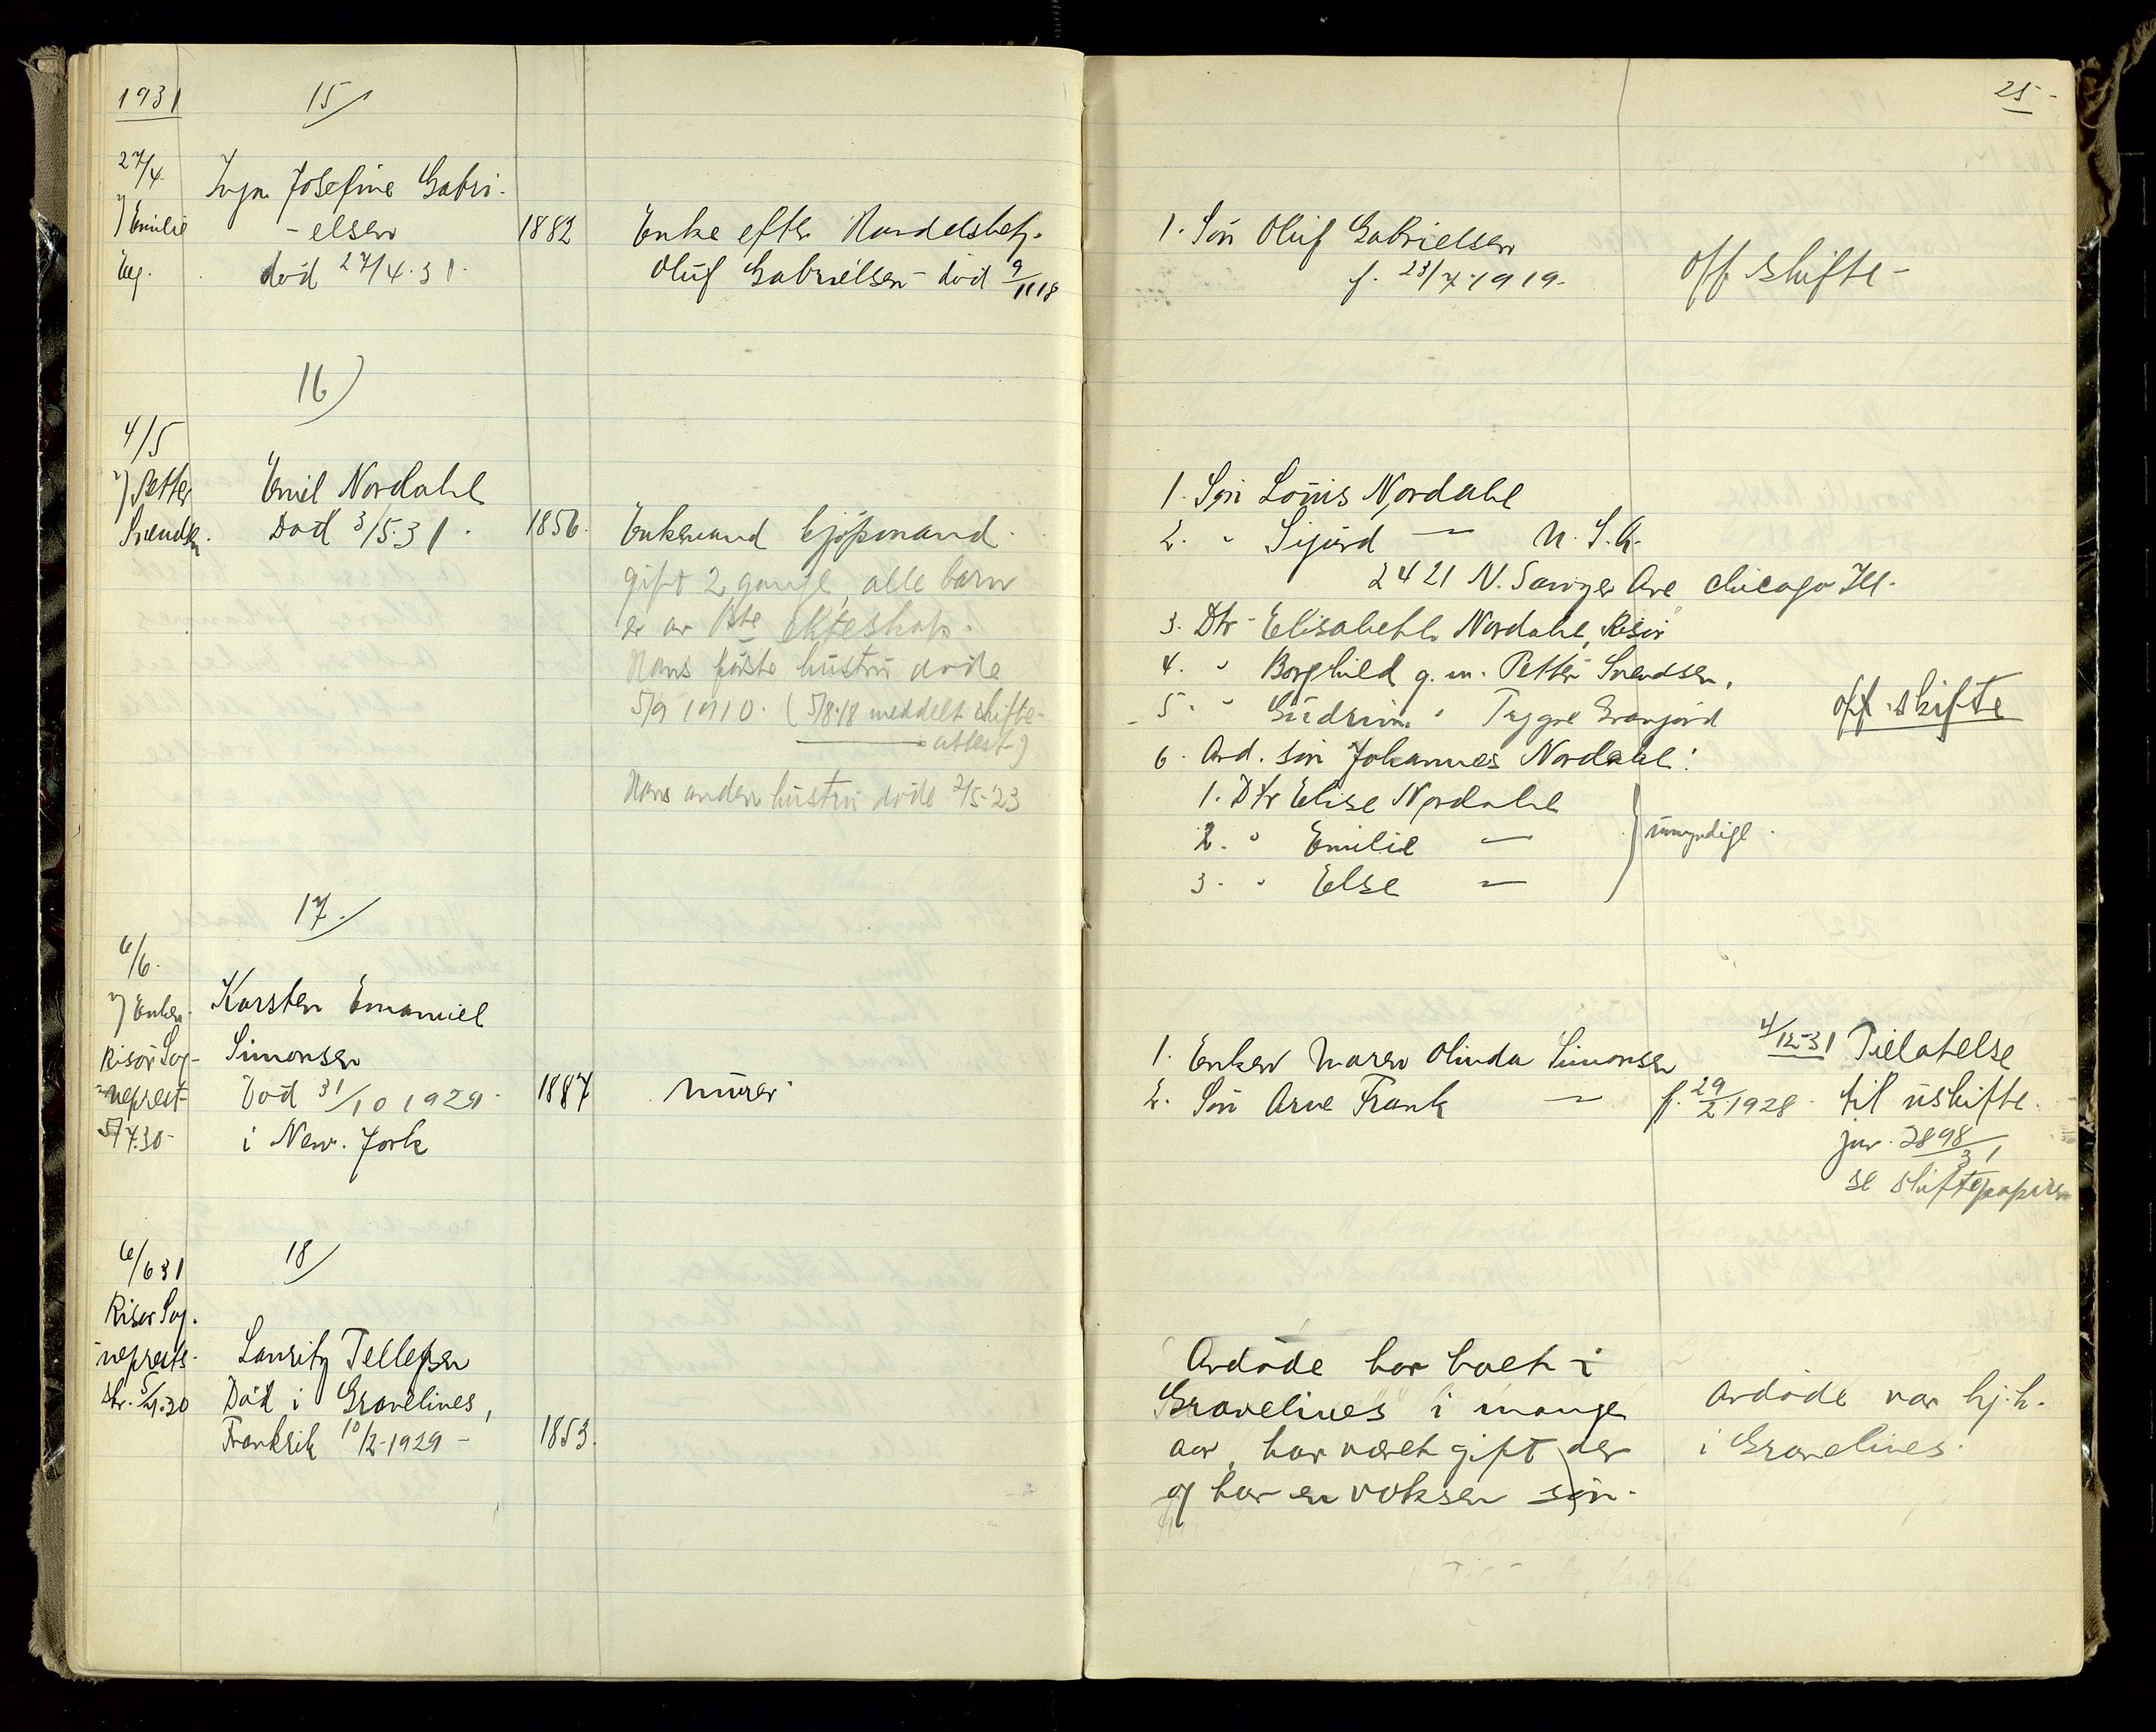 1931
15/
27/4
v/ Emilie
Inga Josefine Gabri-
-elsen
død 27/4.31.
1882
Enke efter Handelsbetj.
Oluf Gabrielsen - död 9/11 18
16)
4/5
v/ Petter
Svendsen.
Emil Nordahl
Död 3/5.31.
1856.
Enkemand kjøpmand.
gift 2 gange, alle barn
er av 1ste ekteskap.
Hans første hustru døde
5/9 1910. (5/8.18 meddelt skifte-
attest)
Hans anden hustru døde 2/5-23
17/
6/6.
v/ Enken.
Risör Sog-
neprest
5/4.30-
Karsten Emanuel
Simonsen
Död 31/10 1929.
i New. York
1887
Murer
6/6 31
18/
Risør Sog.
neprests.
skr. 5/4.30
Lauritz Tellefsen
Död i Gravelines,
Frankrik 10/2-1929 -
1853.
25-
1. Sön Oluf Gabrielsen
f. 23/7.1919.
off skifte-
1. Søn Louis Nordahl
2. " Sigurd — U.S.A.
2421 N. Sawyer Ave Chicago Ill.
3. Dtr Elisabeth Nordahl, Risör
4. " Borghild g.m. Petter Svendsen,
5. " Gudrun " Tryggve
off. skifte
6. Avd. sön Johannes Nordahl:
1. Dtr Elise Nordahl
2. " Emilie —
3. " Else —
umyndige.
1. Enken Maren Olinda Simonsen
2. Sön Arne Frank — f. 29/2 1928.
4/12-31 Tillatelse
til uskifte.
jnr. 2898/31
se skiftepapirer
Avdöde har boet i
Gravelines i mange
aar, har været gift der
og har en voksen sön.
Avdöde var hj.h.
i Gravelines.